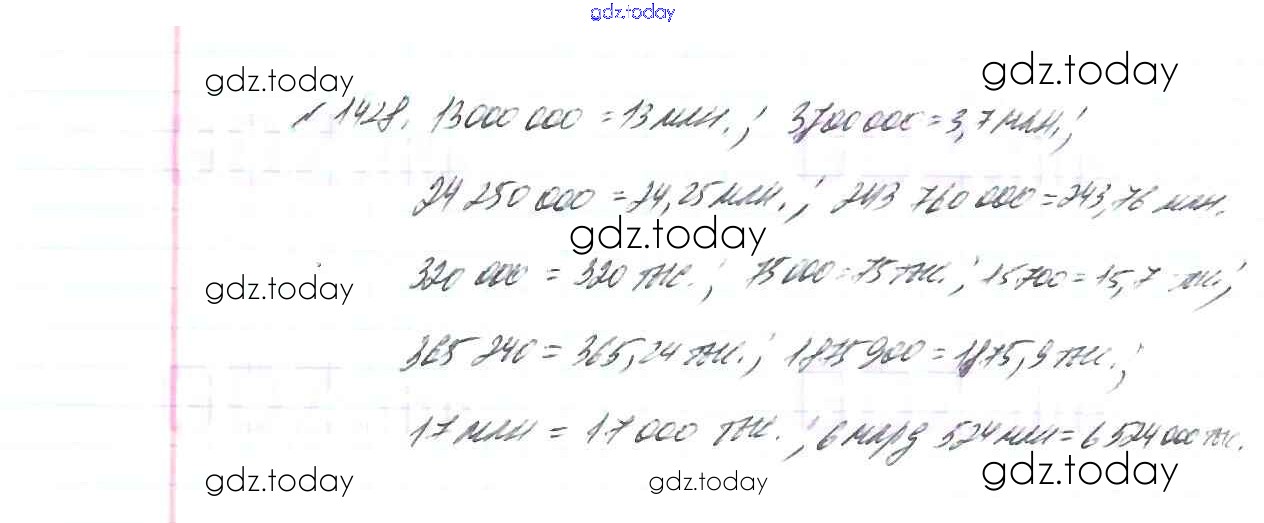 gdz.today
gdz.today
gdz.today
№ 1428. 13 000 000 = 13 млн.; 3700 000 = 3,7 млн.;
24 250 000 = 24,25 млн.; 243 760 000 = 243,76 млн.
gdz.today
320 000 = 320 тыс.; 75 000 = 75 тыс.; 15 700 = 15,7 тыс.;
gdz.today
365 240 = 365,24 тыс.; 1875 900 = 1875,9 тыс.;
17 млн = 17 000 тыс.; 6 млрд 524 млн = 6 524 000 тыс.
gdz.today
gdz.today
gdz.today